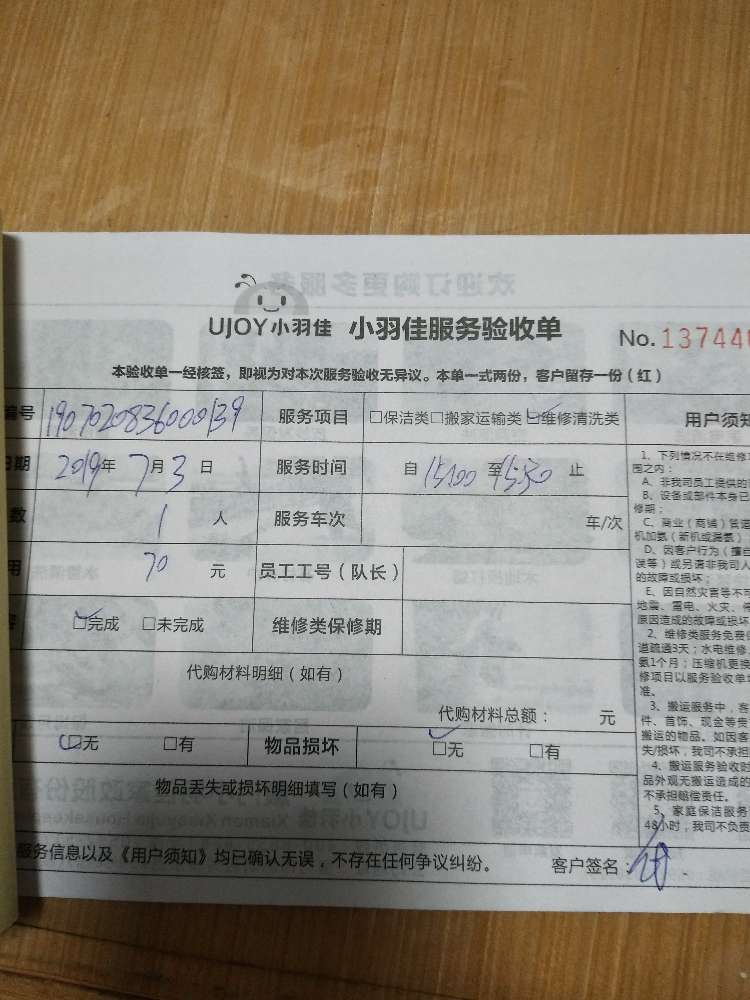 UJOY小羽佳 小羽佳服务验收单 No.13744
本验收单一经核签，即视为对本次服务验收无异议。本单一式两份，客户留存一份（红）
编号 190702083600139 服务项目 □保洁类□搬家运输类□维修清洗类 用户须知
日期 2019年 7月3日 服务时间 自 15:00 至 15:30 止
数 1 人 服务车次 车/次
用 70 元 员工工号（队长）
□完成 □未完成 维修类保修期
代购材料明细（如有）
代购材料总额： 元
□无 □有 物品损坏 □无 □有
物品丢失或损坏明细填写（如有）
服务信息以及《用户须知》均已确认无误，不存在任何争议纠纷。 客户签名：
1、下列情况不在维修
围之内：
A、非我司员工提供的
B、设备或部件本身已
修期；
C、商业（商铺）管道
机加氨（新机或漏氨）
D、因客户行为（擅自
误等）或另请非我司人
的故障或损坏；
E、因自然灾害等不可
地震、雷电、火灾、
原因造成的故障或损坏
2、维修类服务免费
道疏通3天；水电维修
氨1个月；压缩机更换
修项目以服务验收单
准。
3、搬运服务中，客
件、首饰、现金等贵
搬运的物品。如因客
失/损坏，我司不承担
4、搬运服务验收时
品外观无搬运造成的
不承担赔偿责任。
5、家庭保洁服务
48小时，我司不负责